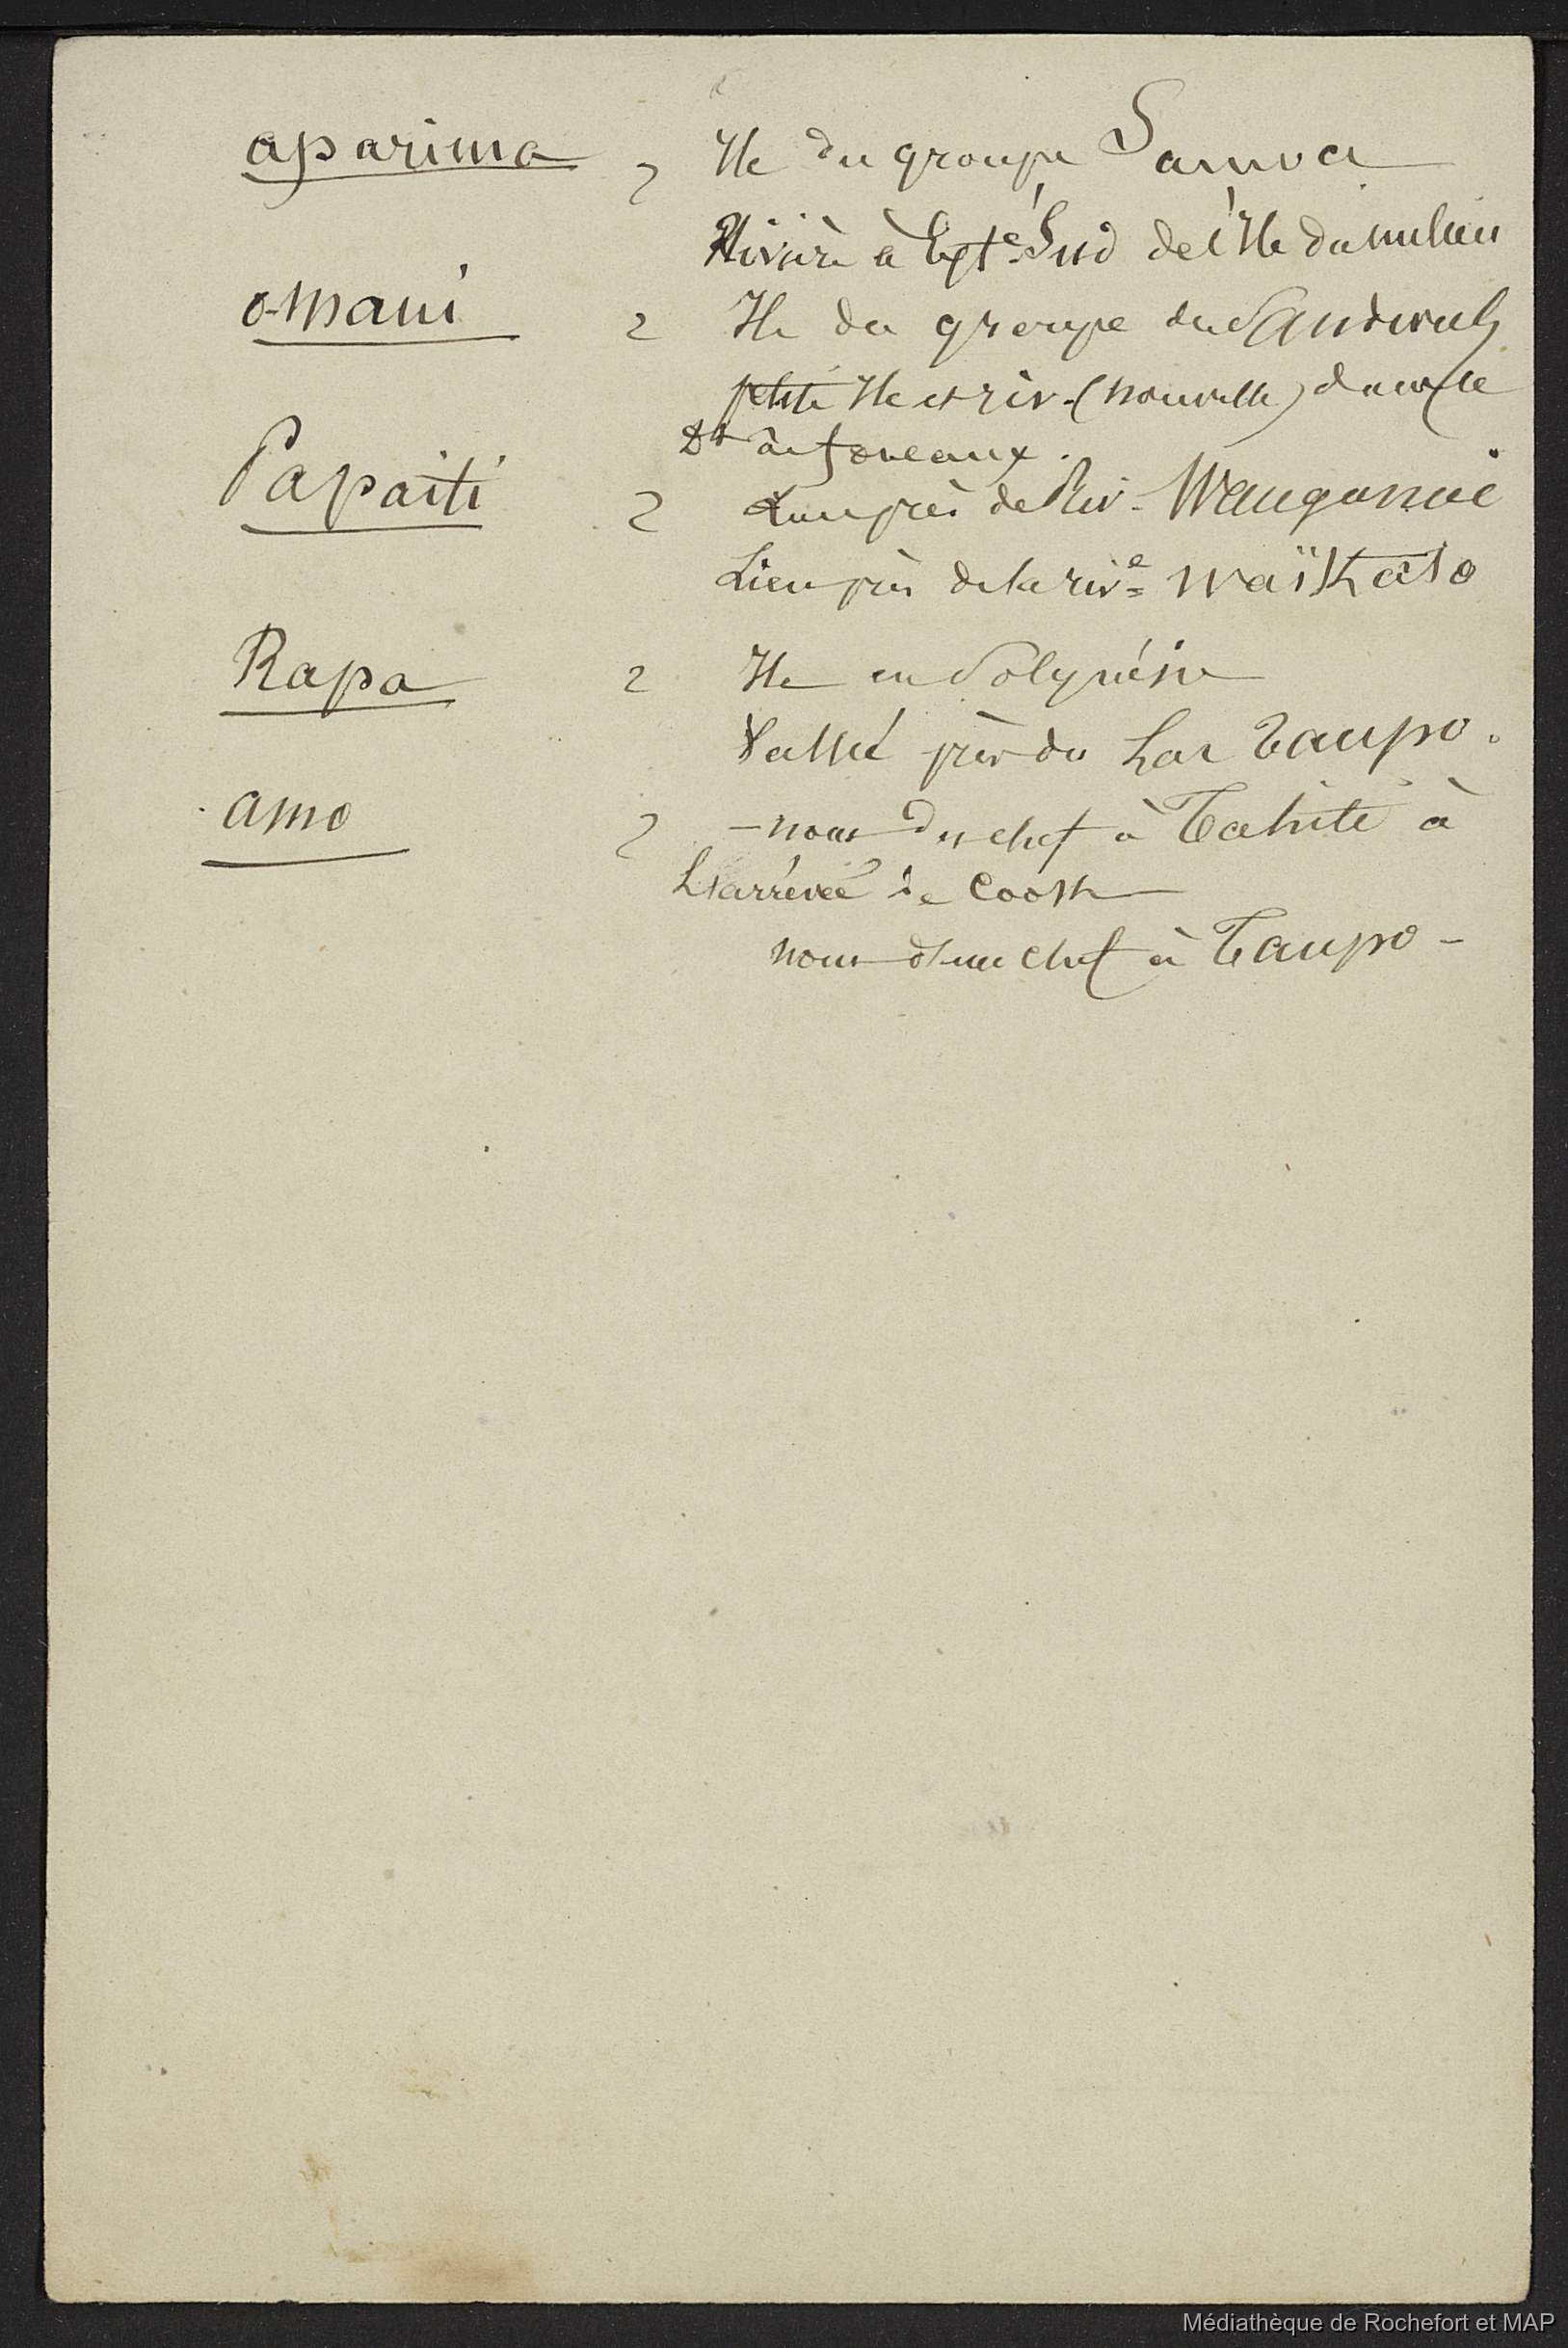 aparima 2 Ile du groupe Samoa
Rivière à l'exté Sud de l'Ile du milieu
o-Maui 2 Ile du groupe des Sandwich
petite Ile et riv. (nouvelle) dans le
Dt de foveaux.
Papaiti 2 Lieu près de Riv. Wanganui
Lieu près de la rive Waïkato
Rapa 2 Ile en Polynésie
Vallée près du Lac Taupo.
amo 2 - nom du chef à Tahiti à
L'arrivée de Cook
nom d'un chef à Taupo -
Médiathèque de Rochefort et MAP